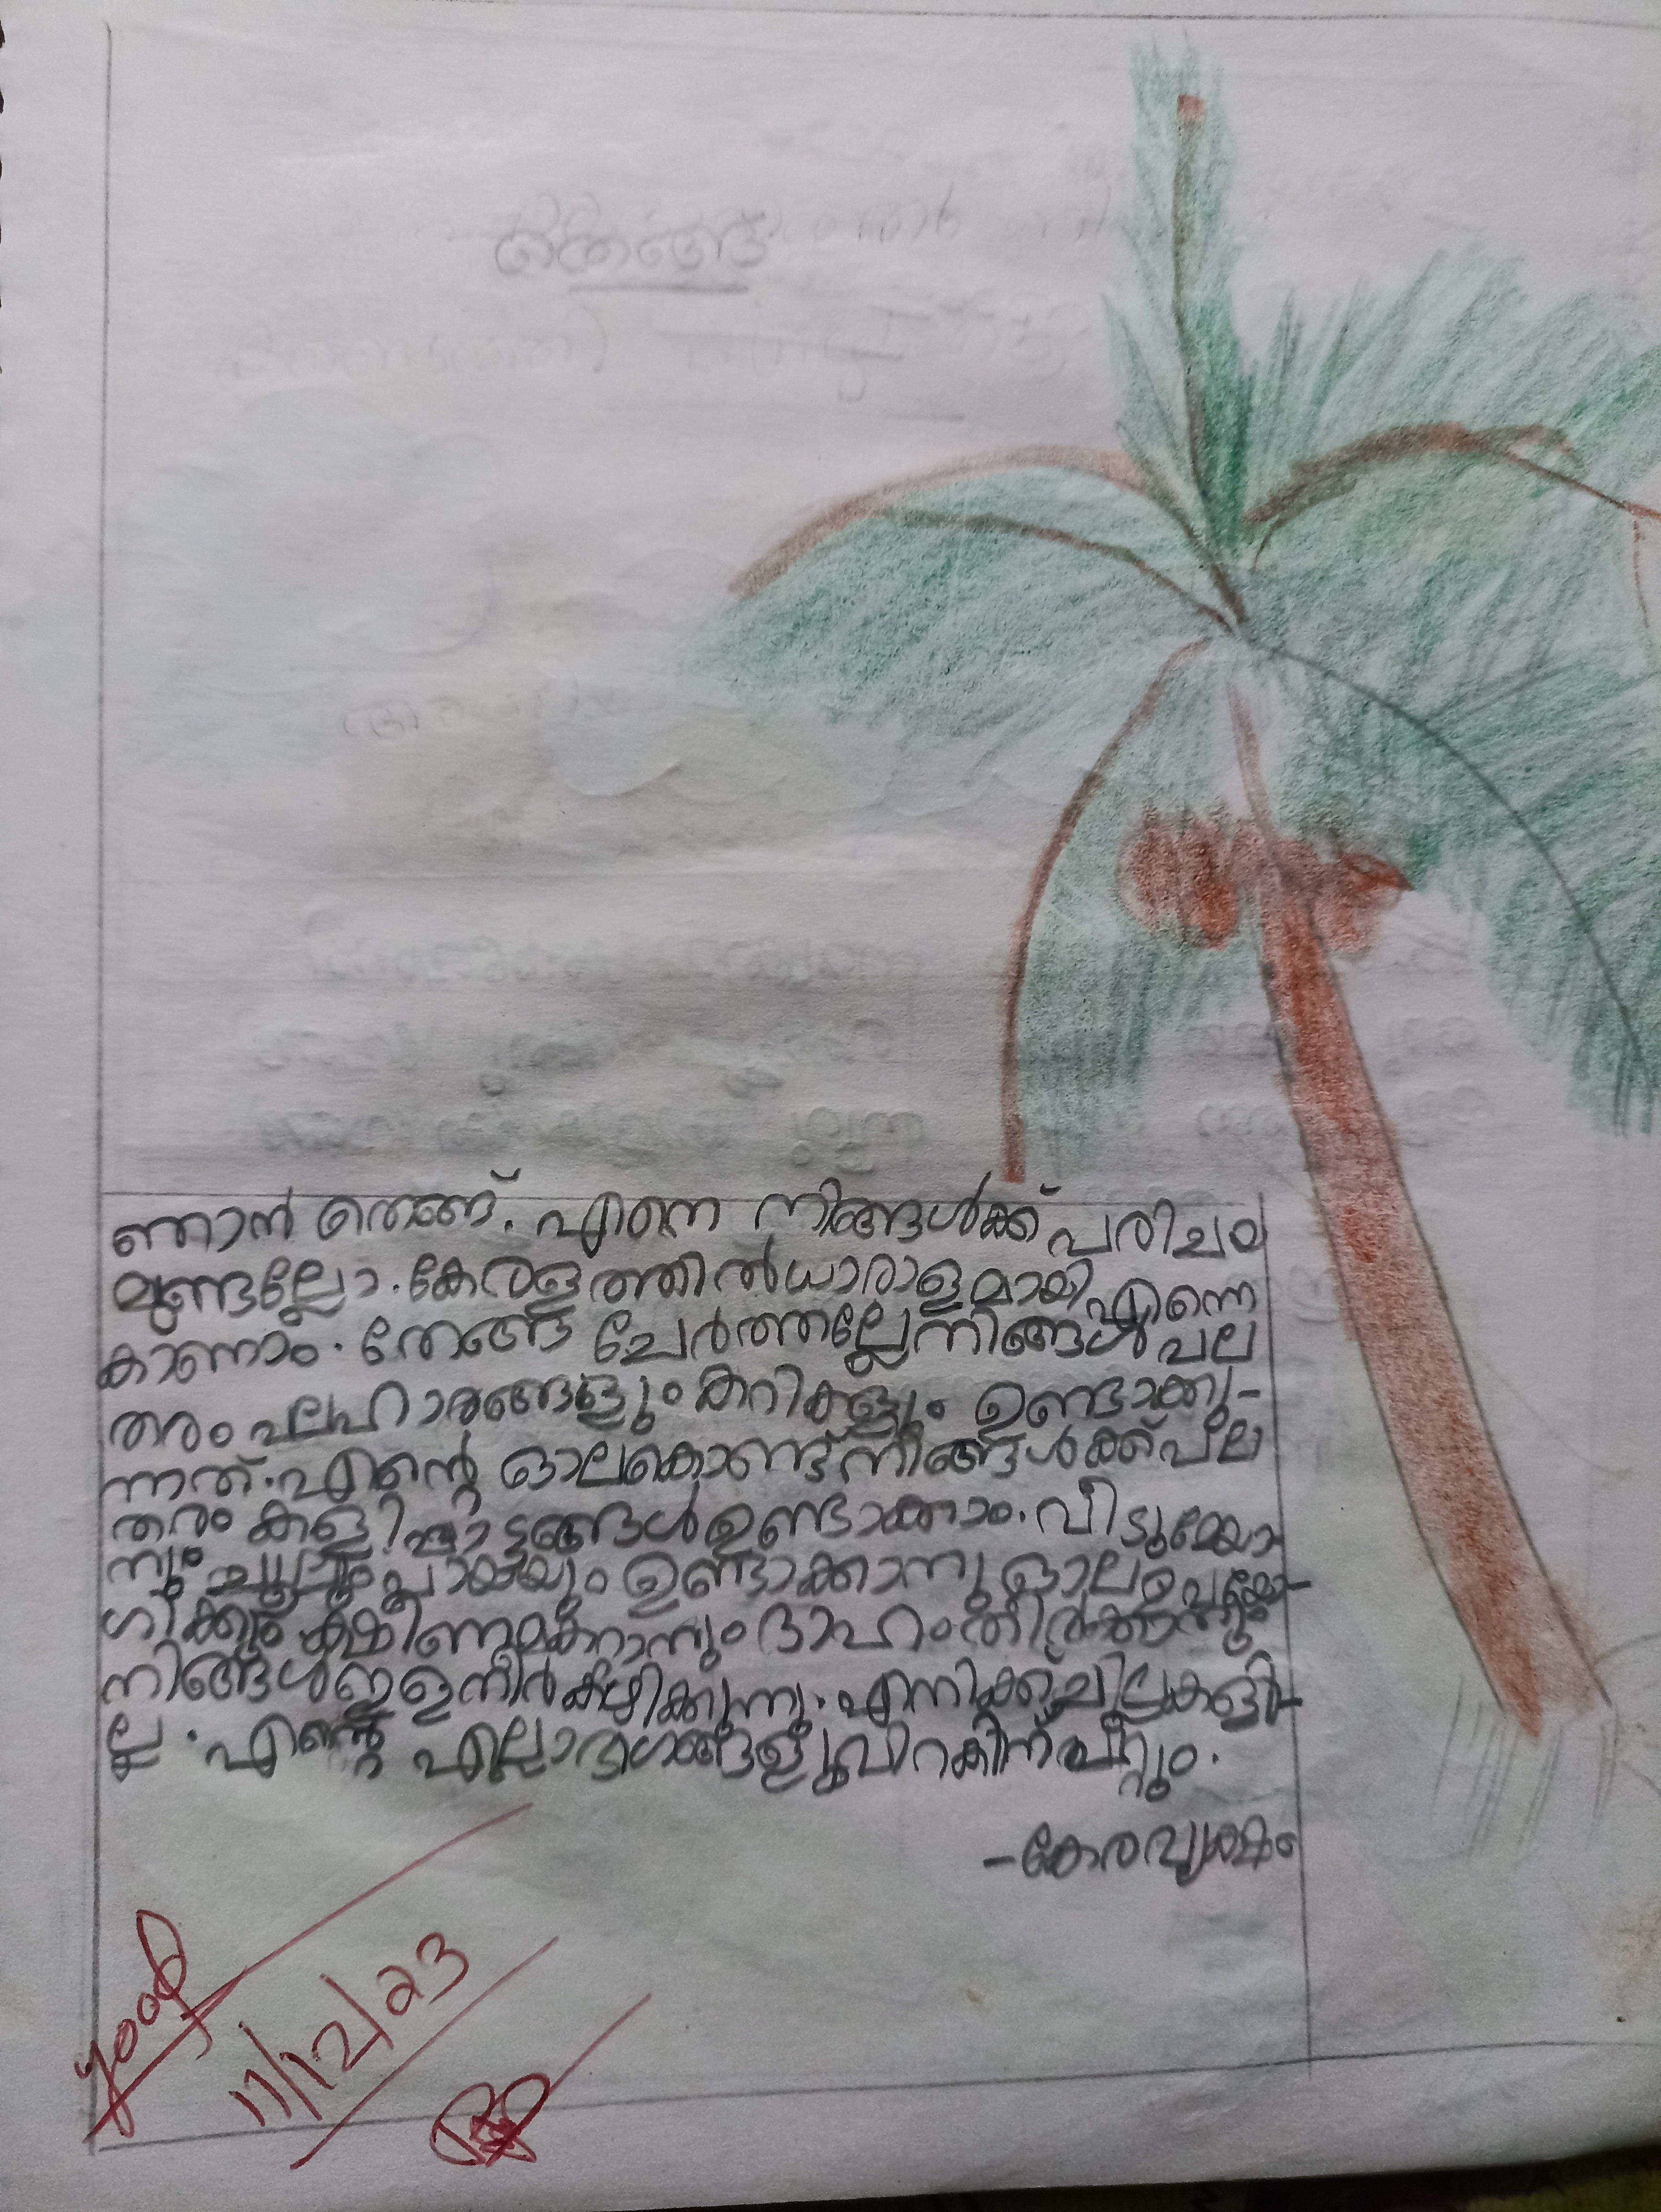 തെങ്ങ്
ഞാൻ തെങ്ങ്. എന്നെ നിങ്ങൾക്ക് പരിചയ
മുണ്ടല്ലോ. കേരളത്തിൽ ധാരാളമായി എന്നെ
കാണാം. തേങ്ങ ചേർത്തല്ലേ നിങ്ങൾ പല
തരം പലഹാരങ്ങളും കറികളും ഉണ്ടാക്കു-
ന്നത്. എന്റെ ഓലകൊണ്ട് നിങ്ങൾക്ക് പല
തരം കളിപ്പാട്ടങ്ങൾ ഉണ്ടാക്കാം. വീടുമേയാ
നും ചൂലും പായയും ഉണ്ടാക്കാനു ഓല ഉപയോ-
ഗിക്കും. ക്ഷീണമകറ്റാനും ദാഹം തീർക്കാനും
നിങ്ങൾ ഇളനീർ കുടിക്കുന്നു. എനിക്ക് ചില്ലകളി-
ല്ല. എന്റെ എല്ലാ ഭാഗങ്ങളും വിറകിന് പറ്റും.
-കേരവൃക്ഷം
good
11/12/23